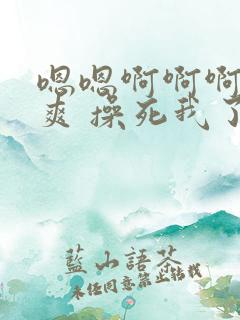 嗯嗯啊啊啊
爽 操死我了
蓝山語茶
未经同意禁止转载